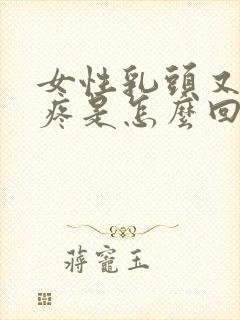 女性乳頭又
疼是怎麼回
蔣寵玉